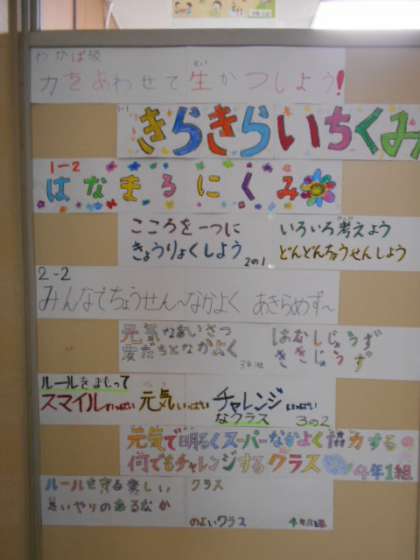 わかば級
力をあわせて生かつしよう!
1-1
きらきらいちくみ
1-2
はなまるにくみ
こころを一つに
きょうりょくしよう 2の1
いろいろ考えよう
どんどんちょうせんしよう
2-2
みんなでちょうせん〜なかよく あきらめず〜
元気なあいさつ
友だちとなかよく
はなしじょうず
ききじょうず
ルールをまもって
スマイルいっぱい 元気いっぱい チャレンジいっぱい
なクラス 3の2
元気で明るくスーパーなかよく協力する
何でもチャレンジするクラス 4年1組
ルールを守る楽しい クラス
思いやりのあるなか
のよいクラス 4年2組